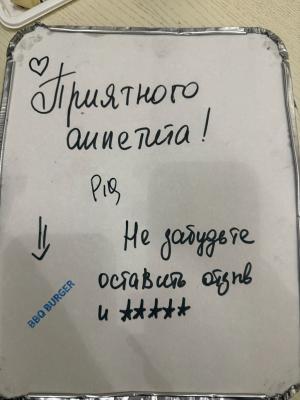 ♡
Приятного
аппетита!
PiQ
⇓
Не забудьте
оставить отзыв
и ★★★★★
BBQ BURGER